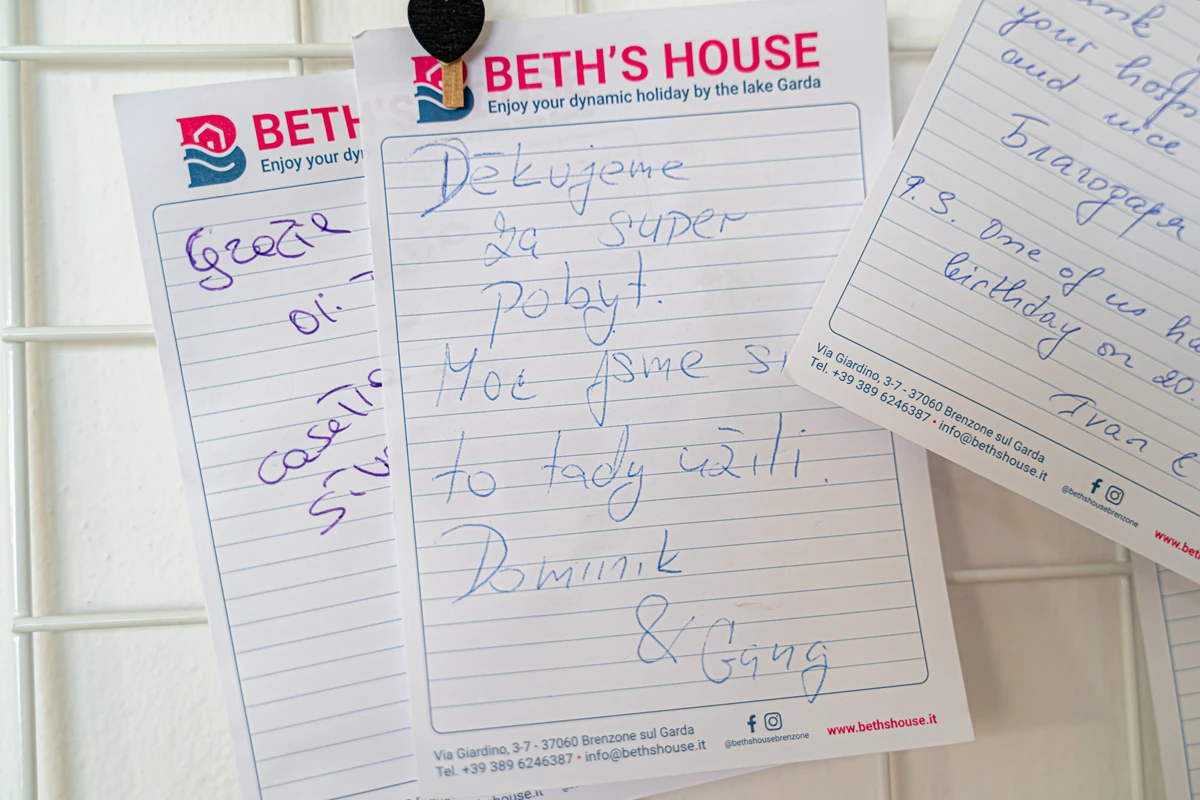 BETH'S HOUSE
Enjoy your dynamic holiday by the lake Garda
Děkujeme
za super
pobyt.
Moc jsme si
to tady užili.
Dominik
& Gang
Via Giardino, 3-7 - 37060 Brenzone sul Garda
Tel. +39 389 6246387 • info@bethshouse.it
@bethshousebrenzone
www.bethshouse.it
BETH
Enjoy your dy
Grazie
di
house.it
your
and nice
Благодаря
P.S. one of us ha
birthday on 20.
Ivan
Via Giardino, 3-7 - 37060 Brenzone sul Garda
Tel. +39 389 6246387 • info@bethshouse.it
@bethshousebrenzone
www.bet